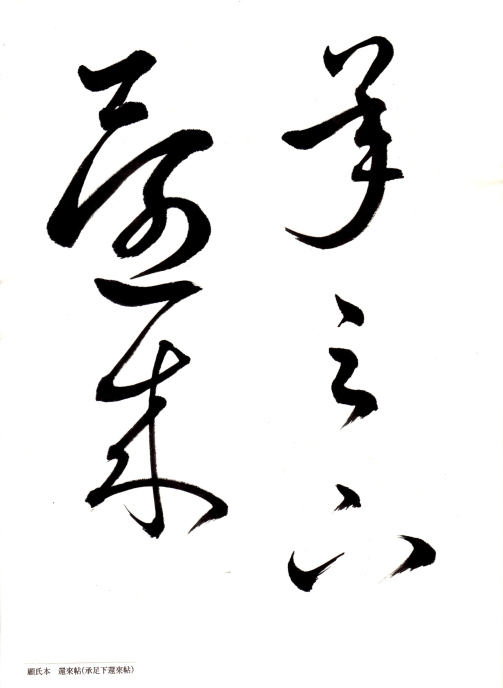 承足下
還來
顧氏本　還來帖(承足下還來帖)